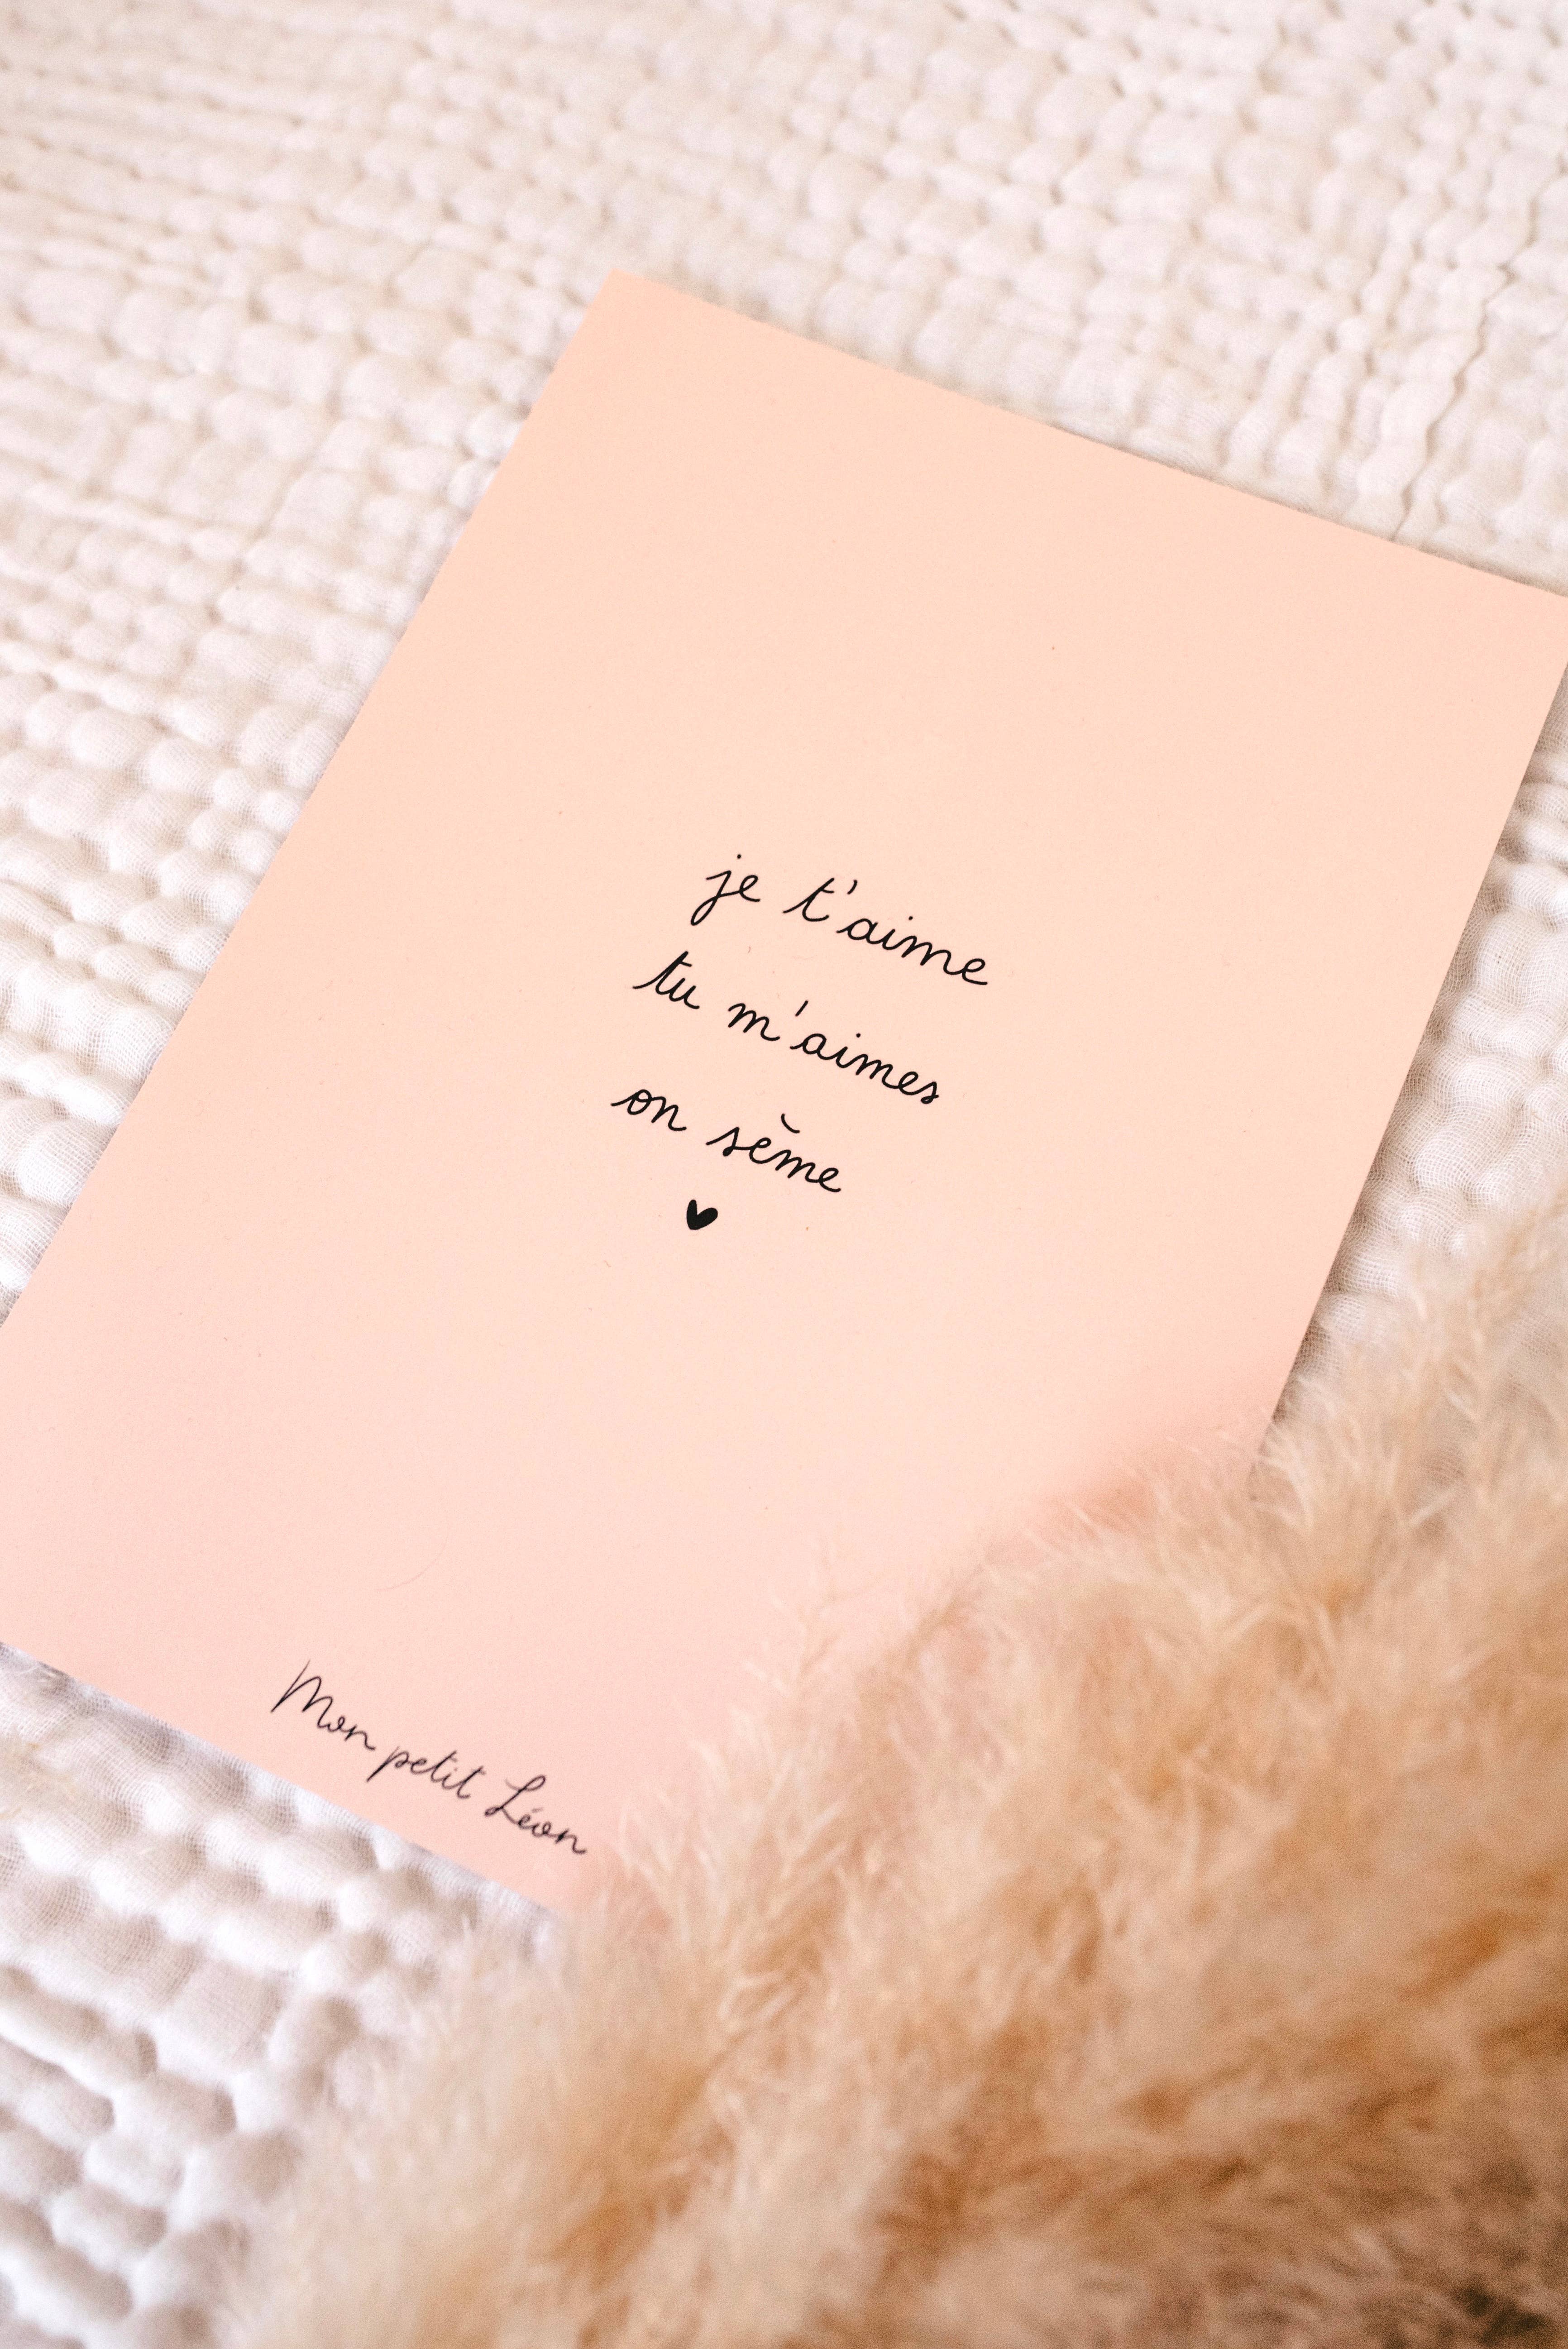 je t'aime
tu m'aimes
on sème
Mon petit Léon